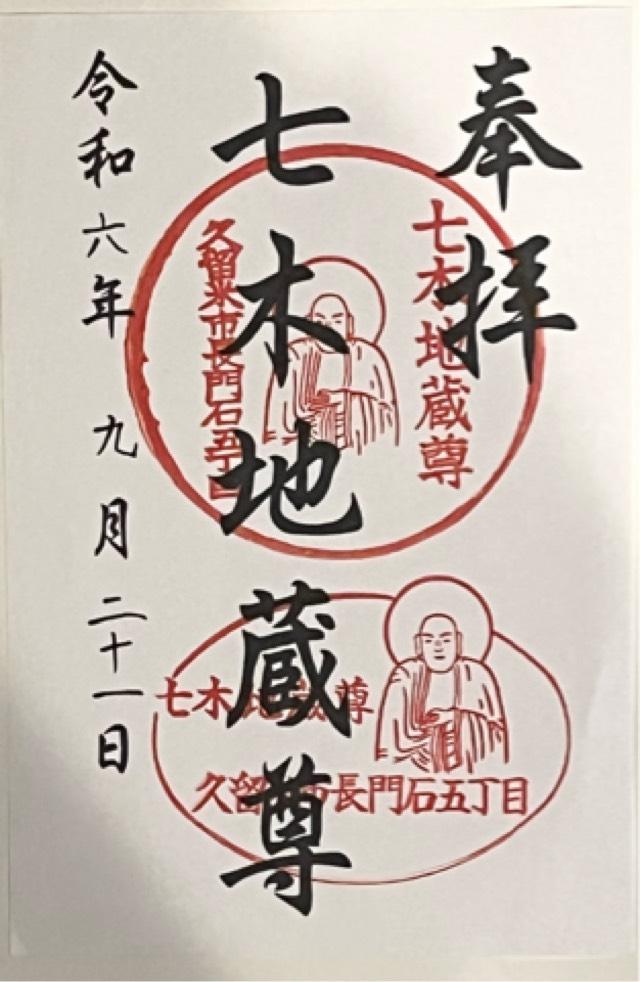 奉拝
七木地蔵尊
令和六年 九月二十一日
七木地蔵尊
久留米市長門石五丁目
七木地蔵尊
久留米市長門石五丁目